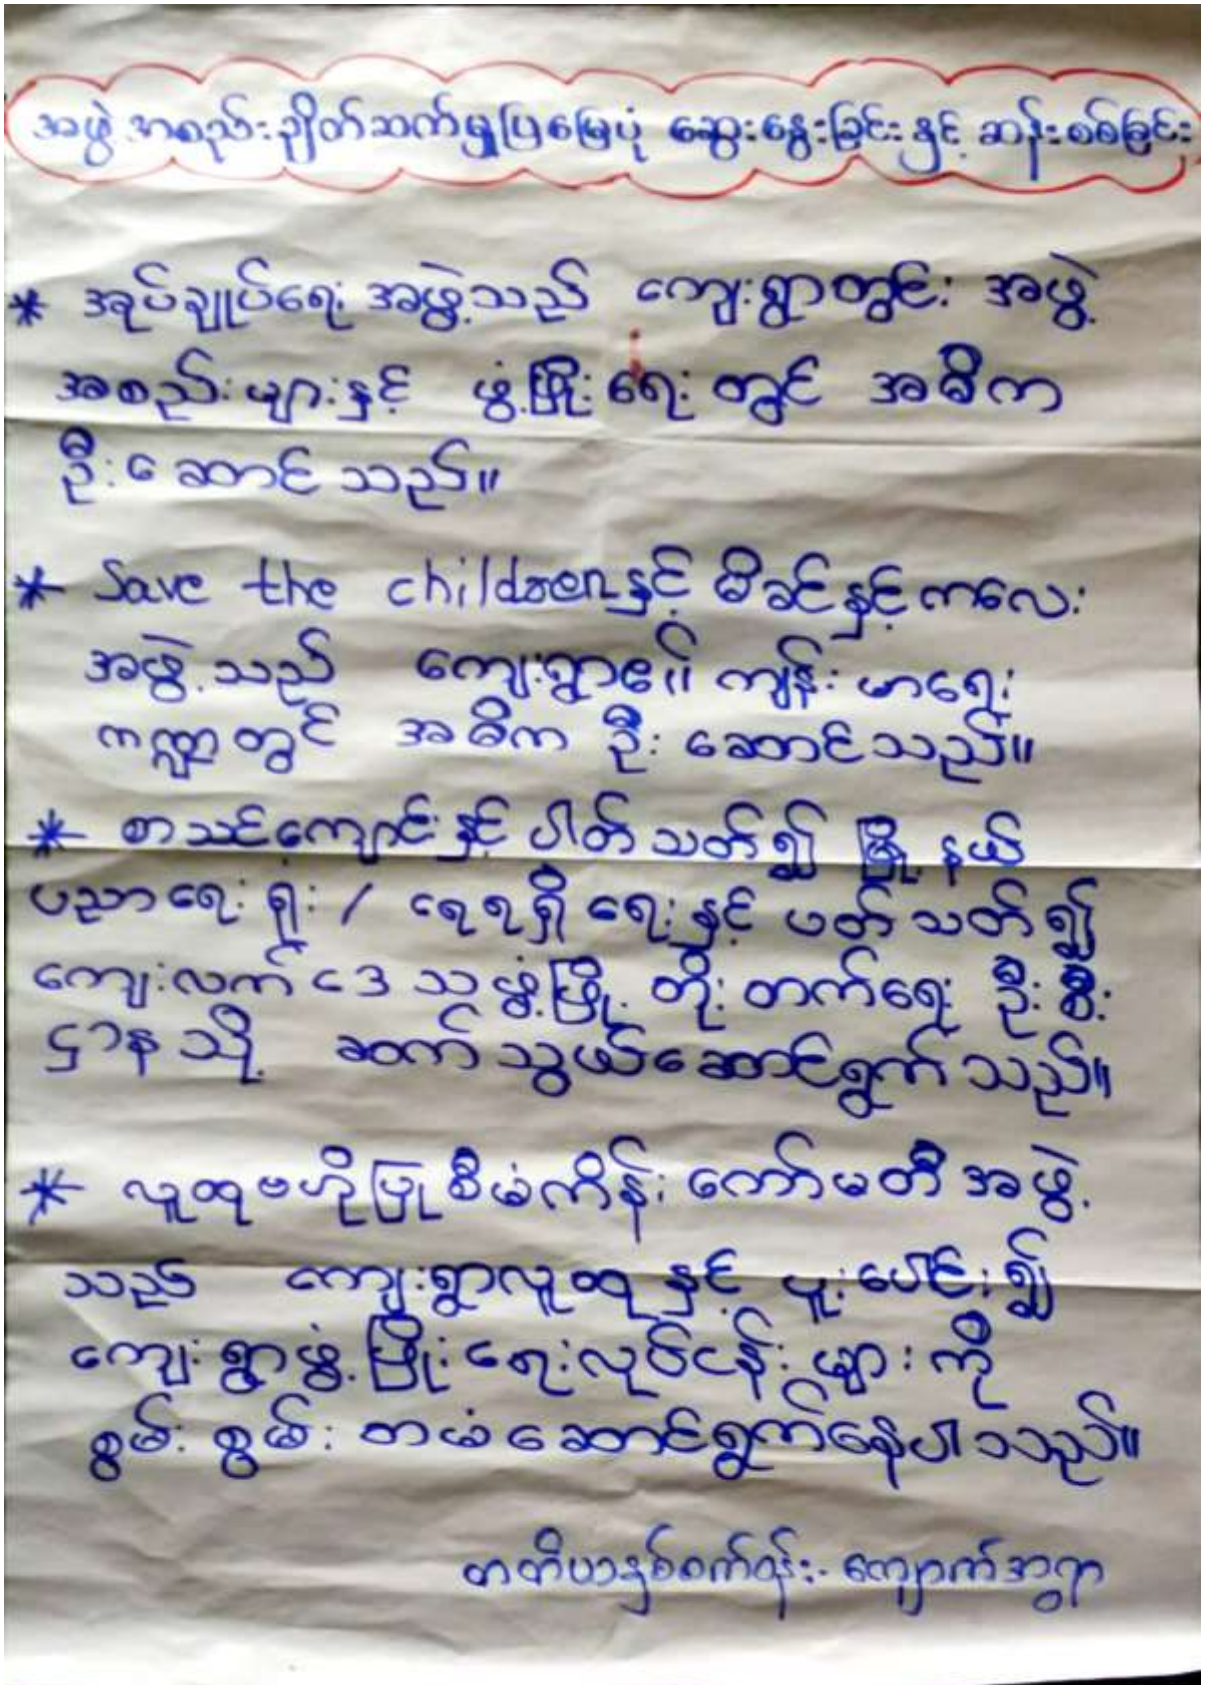 အဖွဲ့အစည်းချိတ်ဆက်မှုပြမြေပုံ ဆွေးနွေးခြင်းနှင့် ဆန်းစစ်ခြင်း
* အုပ်ချုပ်ရေးအဖွဲ့သည် ကျေးရွာတွင်း အဖွဲ့
အစည်းများနှင့် ဖွံ့ဖြိုးရေးတွင် အဓိက
ဦးဆောင်သည်။
* Save the childrenနှင့် မိခင်နှင့်ကလေး
အဖွဲ့သည် ကျေးရွာ၏ ကျန်းမာရေး
ကဏ္ဍတွင် အဓိက ဦးဆောင်သည်။
* စာသင်ကျောင်းနှင့် ပါတ်သတ်၍ မြို့နယ်
ပညာရေးရုံး / ရေရရှိရေးနှင့် ပတ်သတ်၍
ကျေးလက်ဒေသဖွံ့ဖြိုးတိုးတက်ရေးဦးစီး
ဌာနသို့ ဆက်သွယ်ဆောင်ရွက်သည်။
* လူထုဗဟိုပြုစီမံကိန်း ကော်မတီအဖွဲ့
သည် ကျေးရွာလူထုနှင့် ပူးပေါင်း၍
ကျေးရွာဖွံ့ဖြိုးရေးလုပ်ငန်းများကို
စွမ်းစွမ်းတမံဆောင်ရွက်နေပါသည်။
တတိယနှစ်စက်ဝန်း- ကျောက်အရွာ